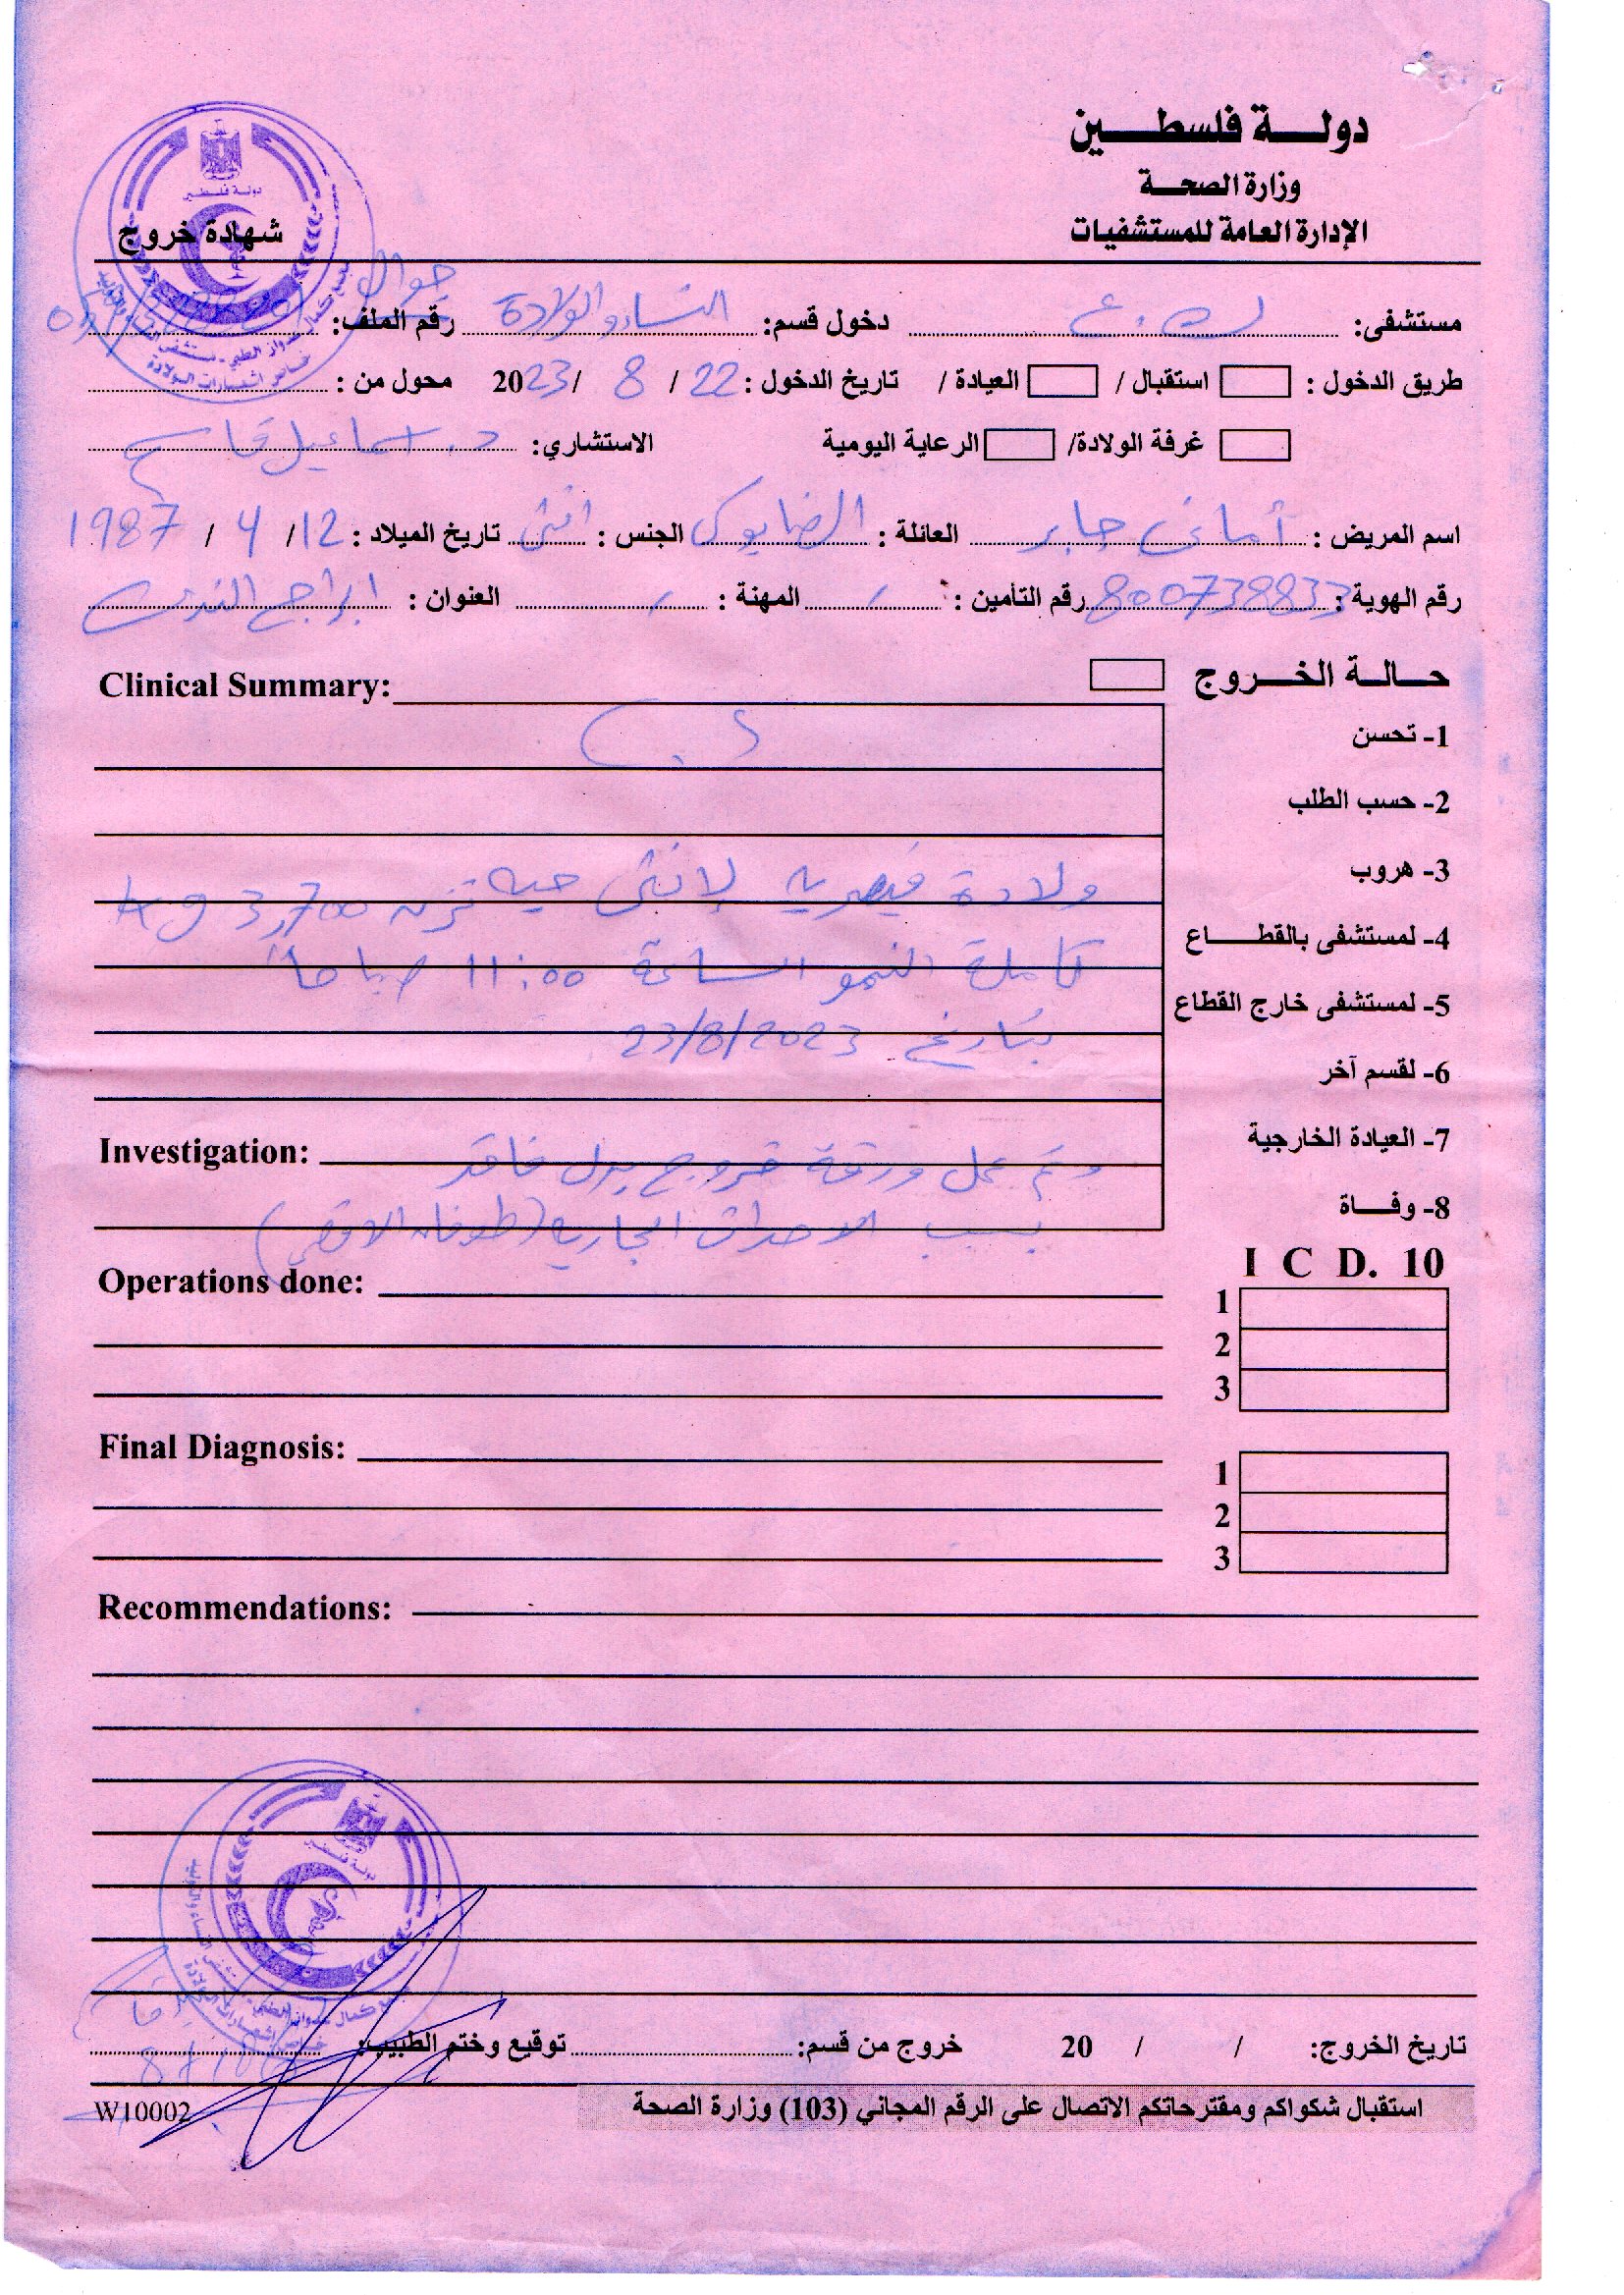 دولة فلسطين
وزارة الصحة
الإدارة العامة للمستشفيات
شهادة خروج
دولة فلسطين
جوال
مستشفى: دخول قسم: النساء والولادة رقم الملف:
خاص اشعارات الولادة
طريق الدخول : استقبال / العيادة / تاريخ الدخول : 22 / 8 / 2023 محول من :
غرفة الولادة/ الرعاية اليومية الاستشاري: د. اسماعيل قاسم
اسم المريض : أماني جابر العائلة : الجنس : انثى تاريخ الميلاد : 12 / 4 / 1987
رقم الهوية : 800738833 رقم التأمين : / المهنة : / العنوان : ابراج الندى
حالة الخروج
Clinical Summary:
1- تحسن
2- حسب الطلب
3- هروب
4- لمستشفى بالقطاع
5- لمستشفى خارج القطاع
6- لقسم آخر
7- العيادة الخارجية
8- وفاة
ولادة قيصرية لانثى حية تزن 3,700 kg
كاملة النمو الساعة 11:00 صباحاً
بتاريخ 23/8/2023
Investigation:
وتم عمل ورقة خروج بدل فاقد
بسبب الاحداث الجارية (طوفان الاقصى)
I C D. 10
Operations done:
1
2
3
Final Diagnosis:
1
2
3
Recommendations:
تاريخ الخروج: / / 20 خروج من قسم: توقيع وختم الطبيب:
استقبال شكواكم ومقترحاتكم الاتصال على الرقم المجاني (103) وزارة الصحة
W10002